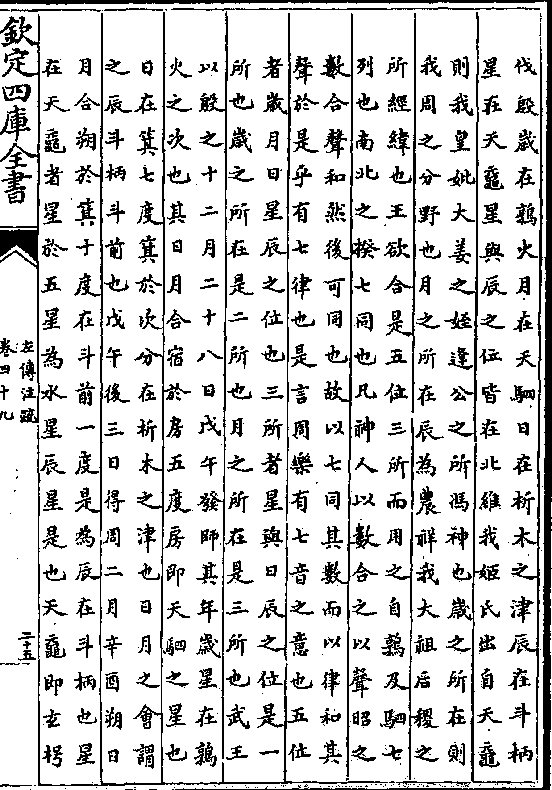 伐殷歲在鶉火月在天駟日在析木之津辰在斗柄
星在天黿星與辰之位皆在北維我姬氏出自天黿
則我皇妣大姜之姪逢公之所馮神也歲之所在則
我周之分野也月之所在辰為農祥我大祖后稷之
所經緯也王欲合是五位三所而用之自鶉及駟七
列也南北之揆七同也凡神人以數合之以聲昭之
數合聲和然後可同也故以七同其數而以律和其
聲於是乎有七律也是言周樂有七音之意也五位
者歲月日星辰之位也三所者星與日辰之位是一
所也歲之所在是二所也月之所在是三所也武王
以殷之十二月二十八日戊午發師其年歲星在鶉
火之次也其日月合宿於房五度房即天駟之星也
日在箕七度箕於次分在析木之津也日月之會謂
之辰斗柄斗前也戊午後三日得周二月辛酉朔日
月合朔於箕十度在斗前一度是為辰在斗柄也星
在天黿者星於五星為水星辰星是也天黿即玄枵
欽定四庫全書
左傳注疏
卷四十九
二十五